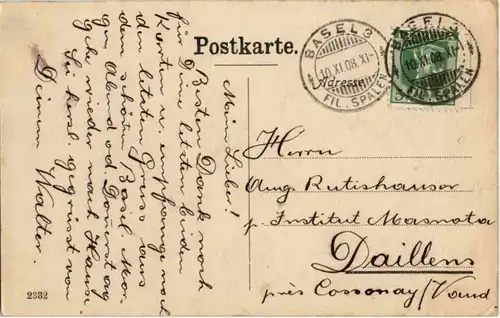 Postkarte.
BASEL 3
10.XI.08.XI-
FIL. SPALEN
BASEL 3
10.XI.08.XI-
FIL. SPALEN
Adresse
Mein Lieber!
Besten Dank noch
für Deine letzten beiden
Karten u. empfange noch
den letzten Gruss aus
dem schönen Basel. Mor-
gen Abd od. Donnerstag
gehe wieder nach Hause.
Sei herzl. gegrüsst von
Deinem Walter.
Herrn
Aug. Rutishauser
p. Institut Masnata
Daillens
près Cossonay/Vaud
2332